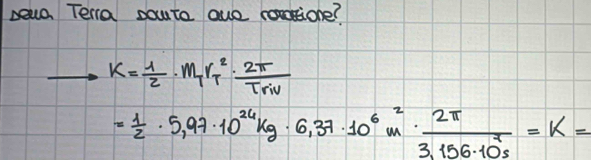 della Terra dovuta alla rotazione?
→ K = 1/2 · m_T r_T² · 2π/T_riv
= 1/2 · 5,97 · 10²⁴ kg · 6,37 · 10⁶ m² · 2π/3,156 · 10⁷ s = K =